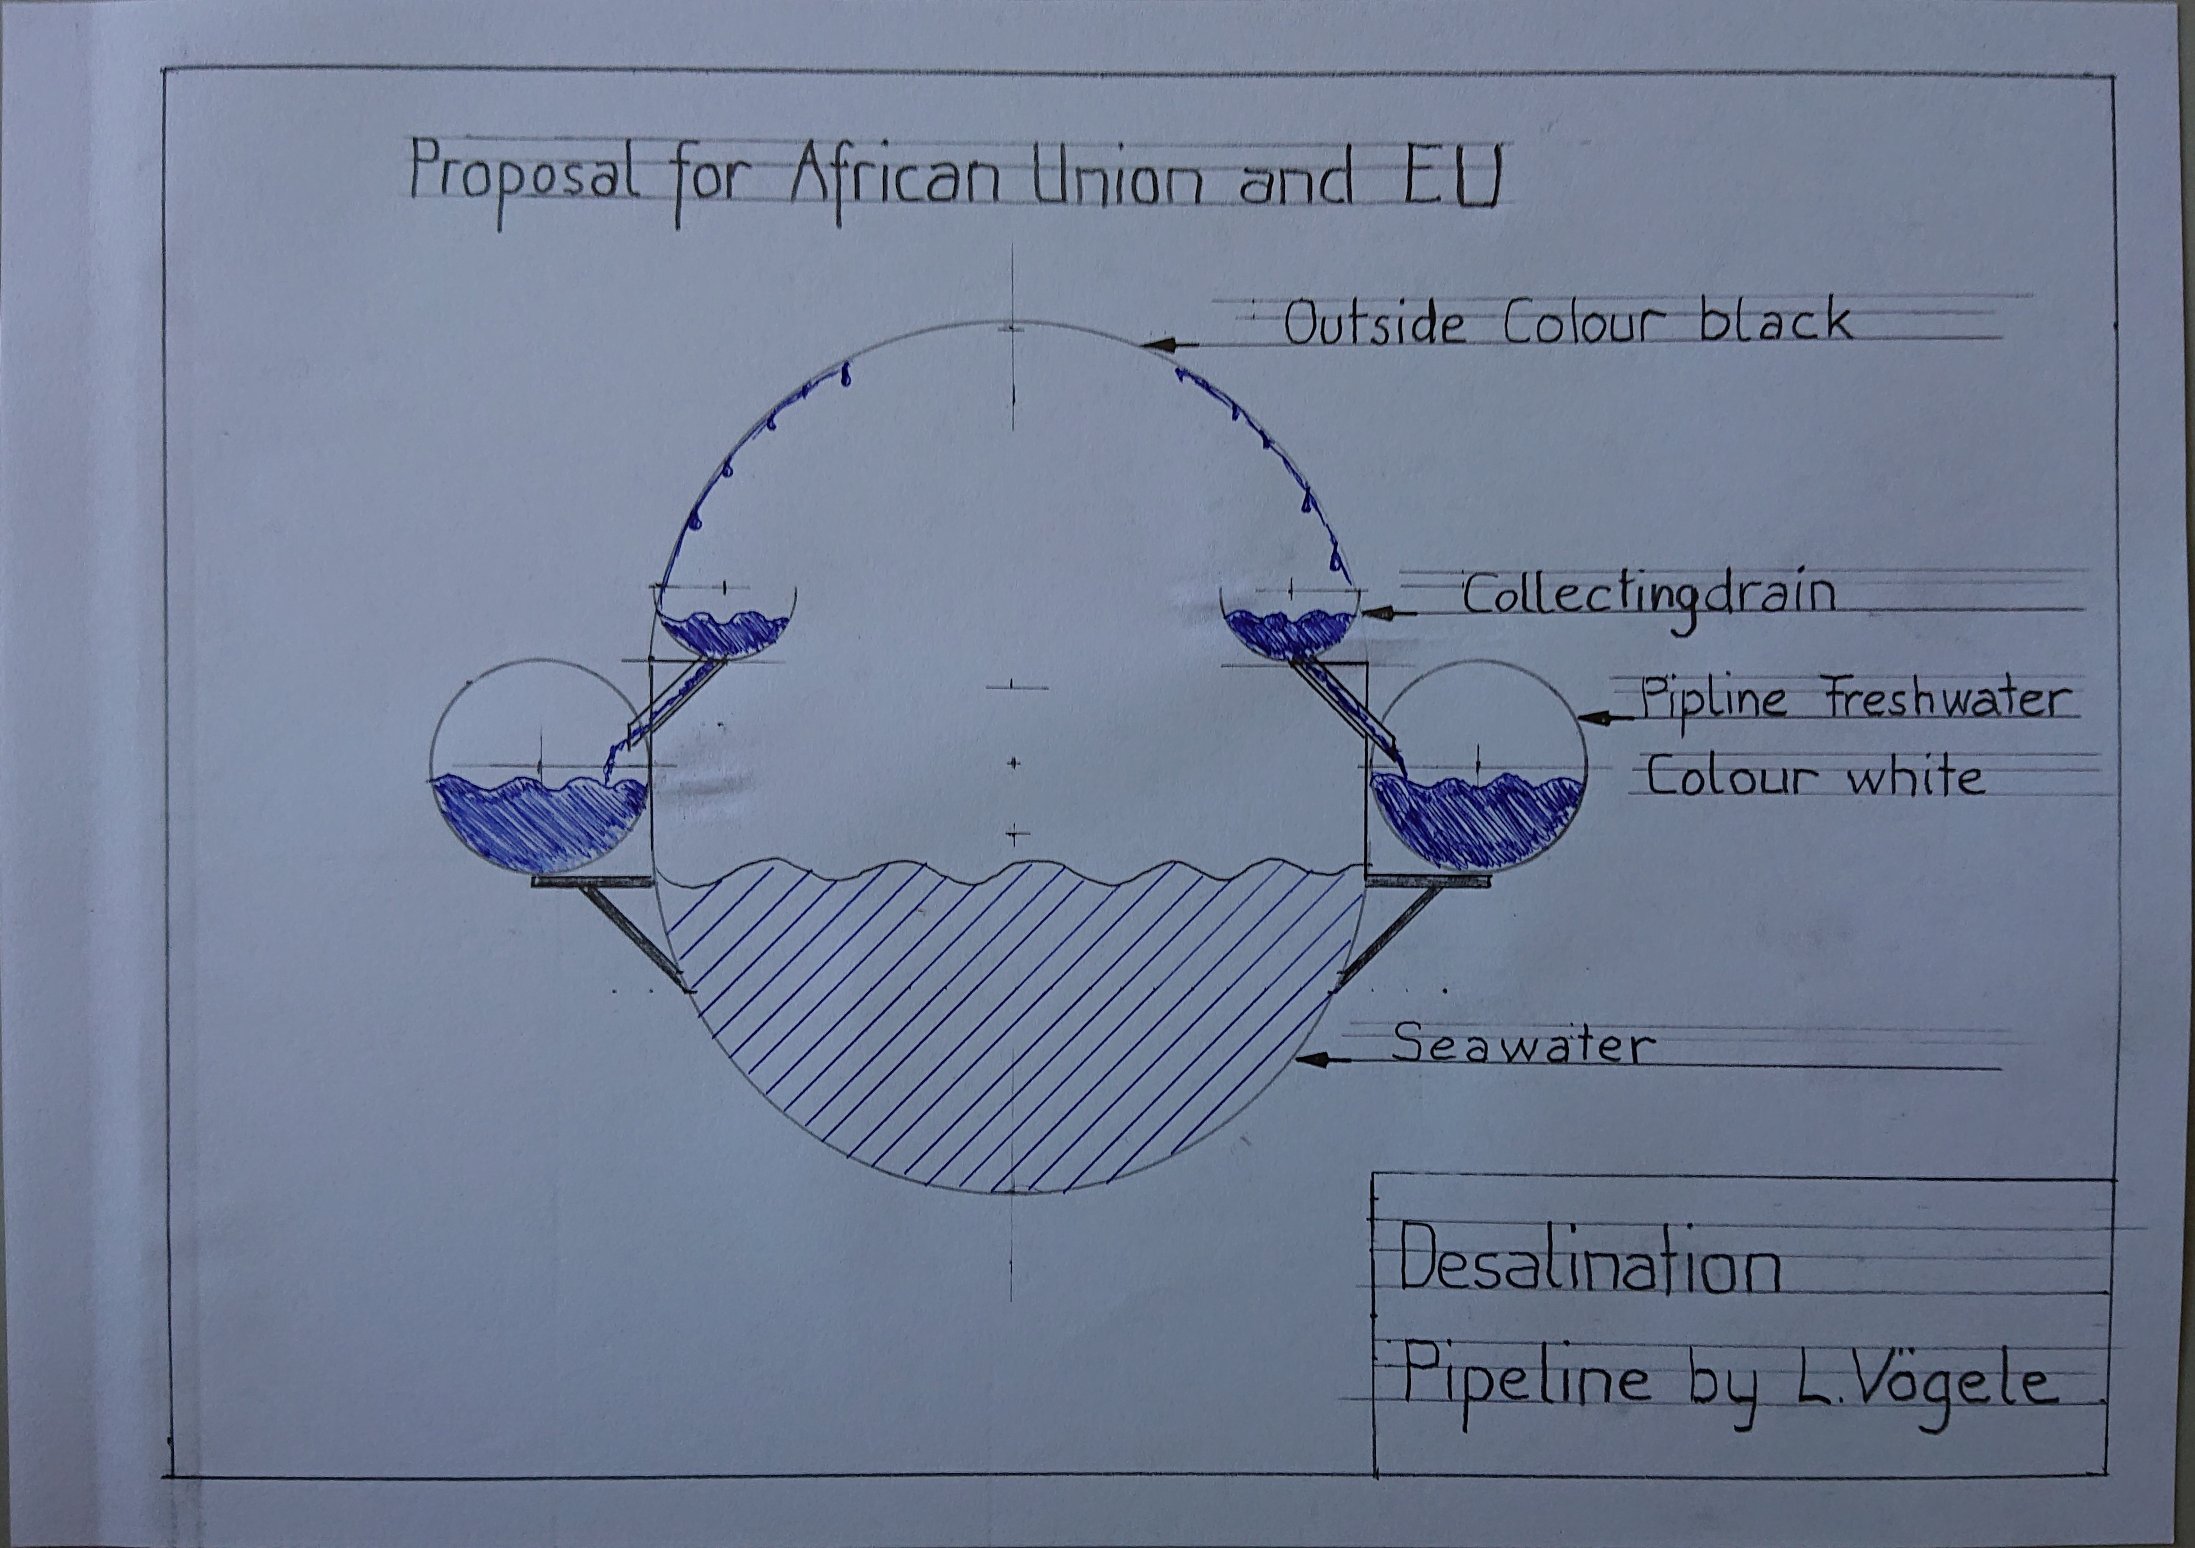 Proposal for African Union and EU
Outside Colour black
Collectingdrain
Pipline Freshwater
Colour white
Seawater
Desalination
Pipeline by L.Vögele